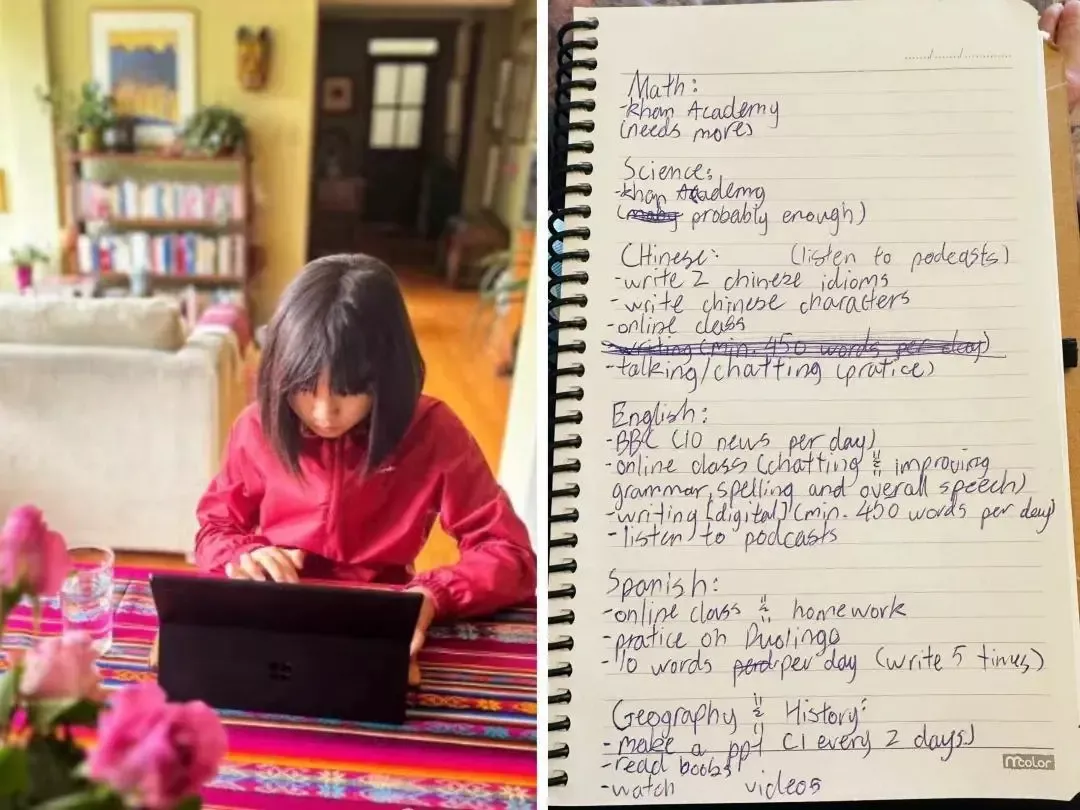 Math:
-Khan Academy
(needs more)
Science:
-Khan Academy
(maby probably enough)
CHinese: (listen to podecasts)
-write 2 chinese idioms
-write chinese characters
-online class
-writing (min. 450 words per day)
-talking/chatting (pratice)
English:
-BBC (10 news per day)
-online class (chatting & improving
grammar, spelling and overall speech)
-writing [digital] (min. 450 words per day)
-listen to podcasts
Spanish:
-online class & homework
-pratice on Duolingo
-10 words per day (write 5 times)
Geography & History:
-make a ppt (1 every 2 days)
-read books
-watch videos
mcolor